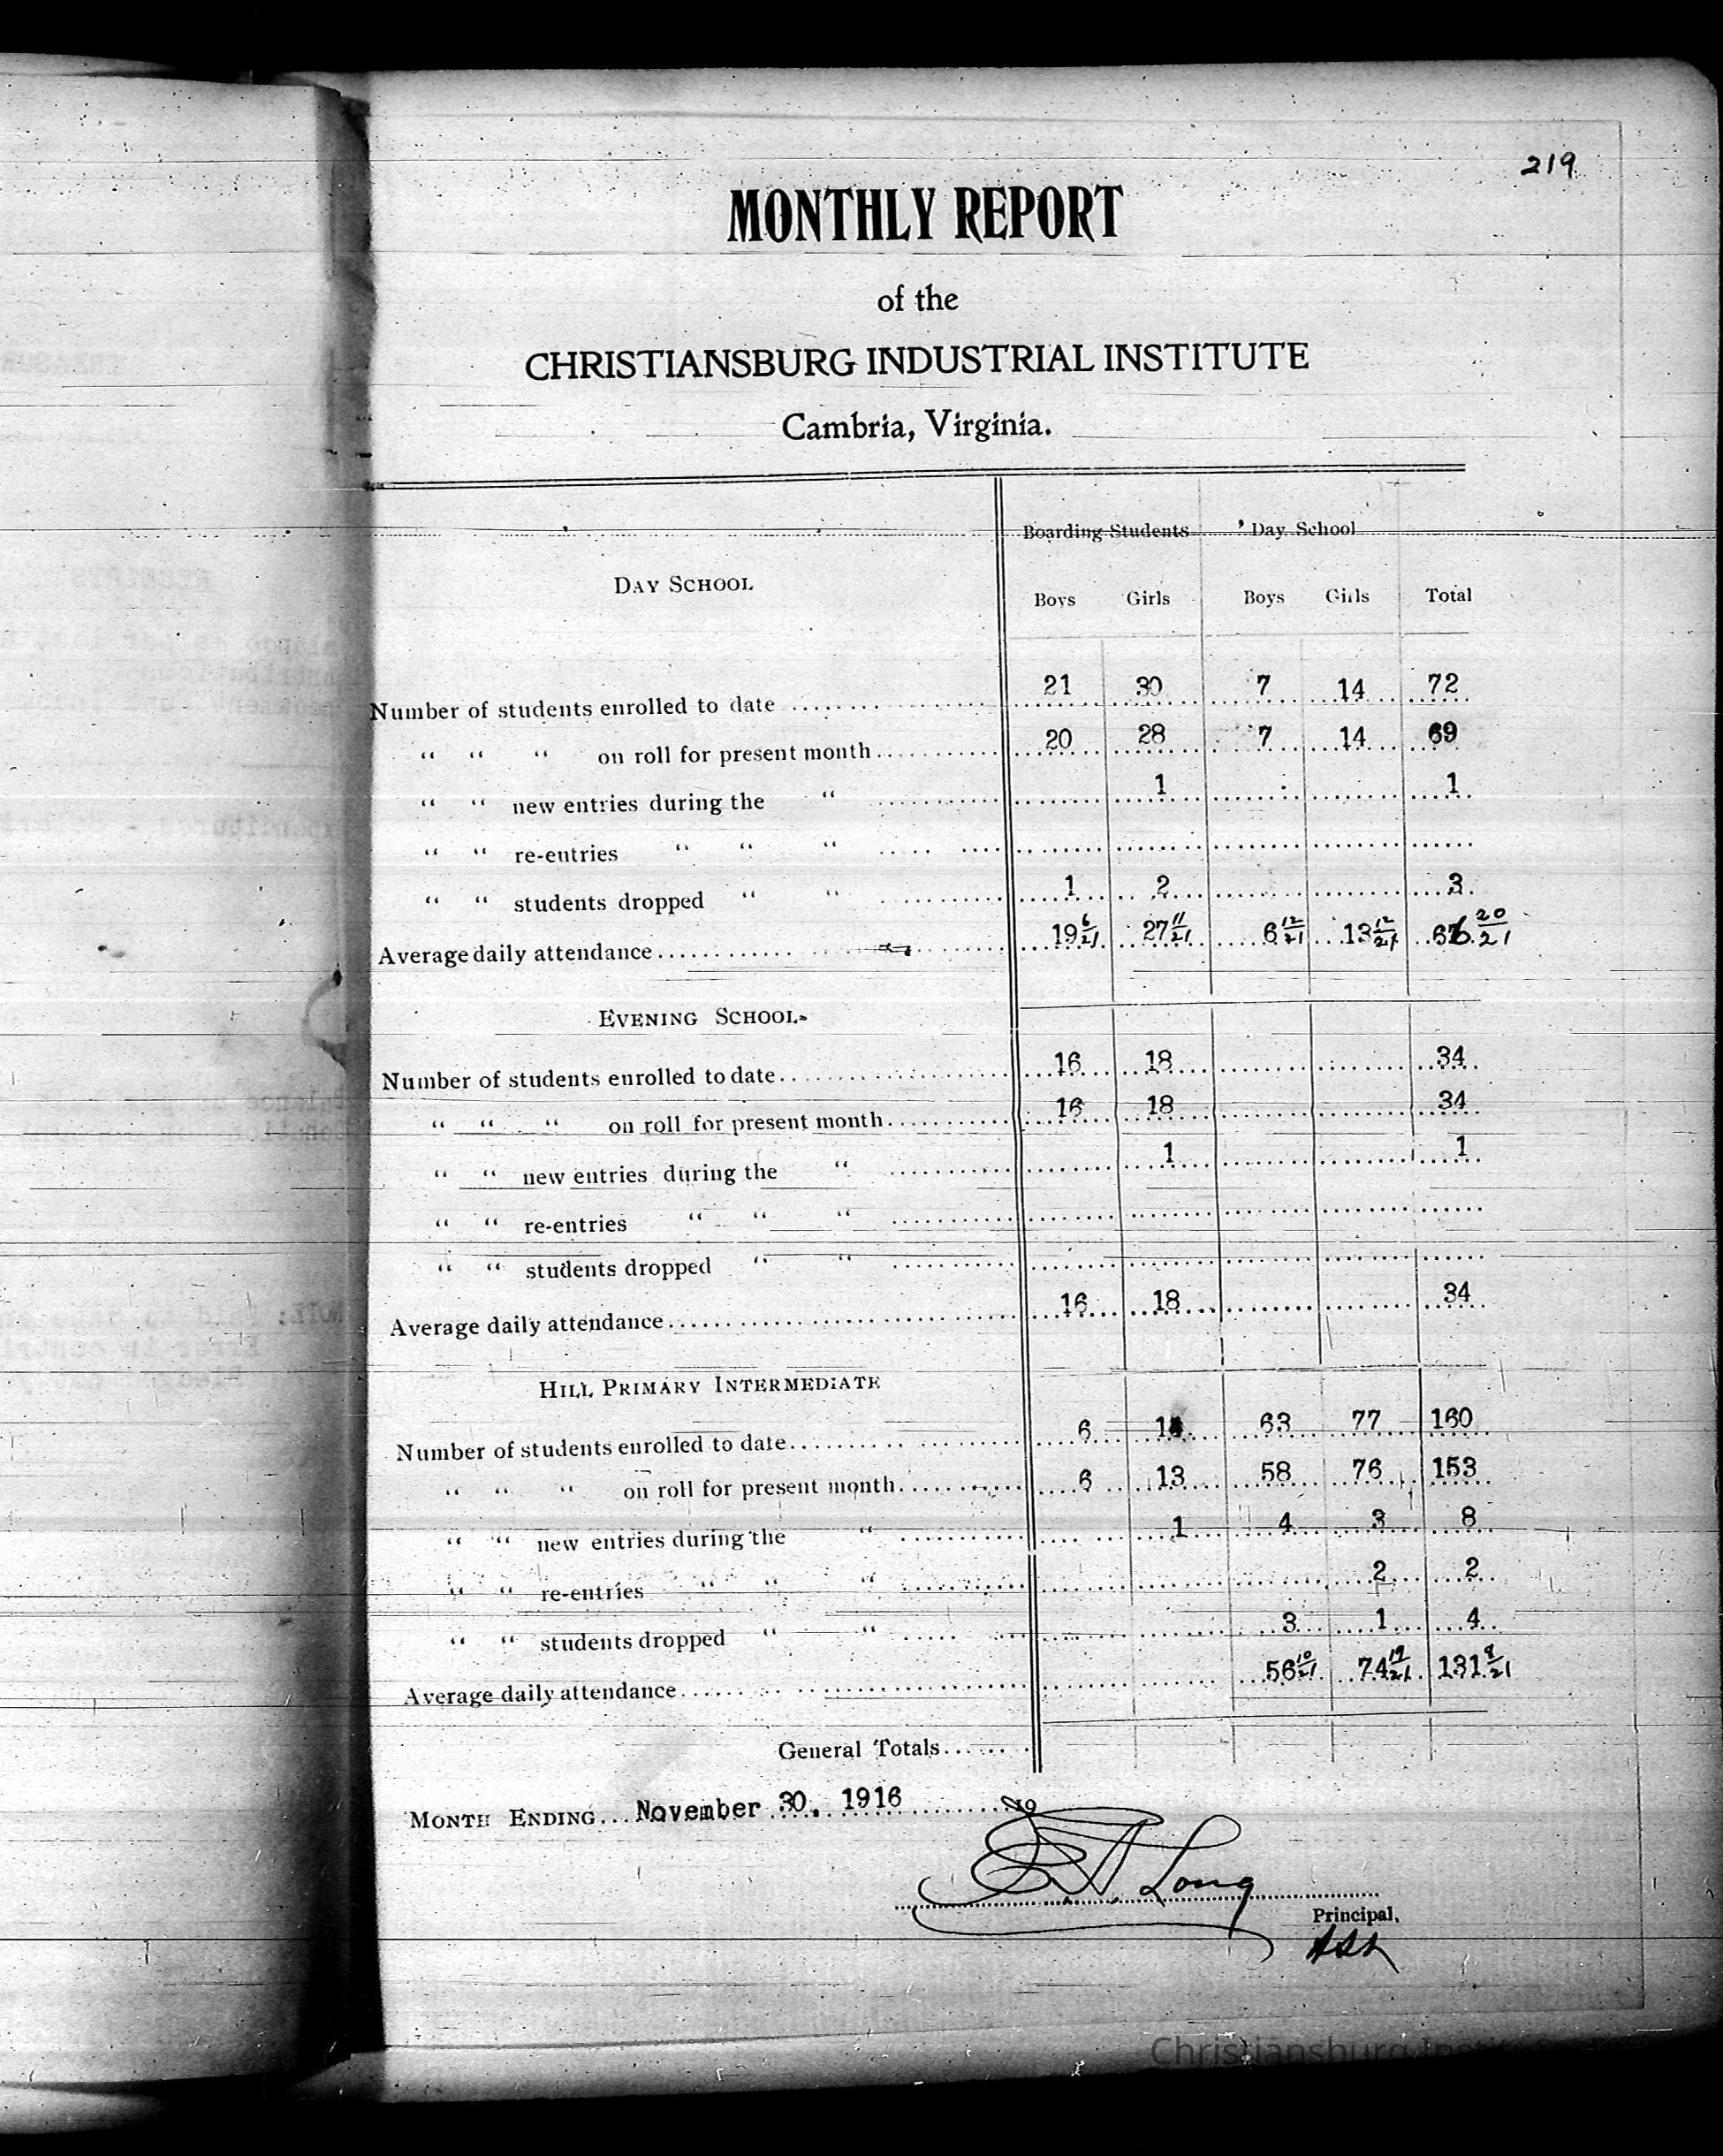 219
MONTHLY REPORT
of the
CHRISTIANSBURG INDUSTRIAL INSTITUTE
Cambria, Virginia.
Boarding Students Day School
DAY SCHOOL
Boys Girls Boys Girls Total
Number of students enrolled to date 21 30 7 14 72
" " " on roll for present month 20 28 7 14 69
" " new entries during the " 1 1
" " re-entries " " "
" " students dropped " " 1 2 3
Average daily attendance 19 6/21 27 11/21 6 12/21 13 12/21 20/21
EVENING SCHOOL
Number of students enrolled to date 16 18 34
" " " on roll for present month 16 18 34
" " new entries during the " 1 1
" " re-entries " " "
" " students dropped " "
Average daily attendance 16 18 34
HILL PRIMARY INTERMEDIATE
Number of students enrolled to date 6 63 77 160
" " " on roll for present month 6 13 58 76 153
" " new entries during the " 1 4 3 8
" " re-entries " " " 2 2
" " students dropped " " 3 1 4
Average daily attendance 56 10/21 74 131
General Totals
MONTH ENDING November 30, 1916 19
Long
Principal.
Christiansburg
RECEIPTS